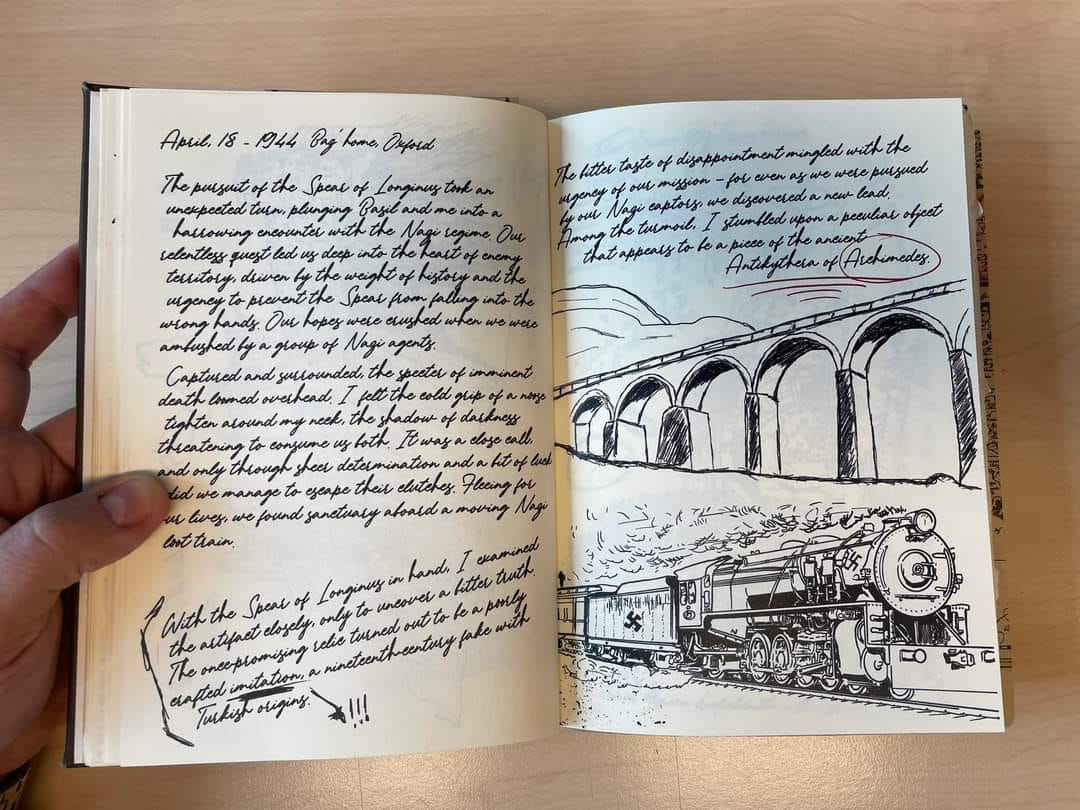 April, 18 - 1944 Bag' home, Oxford
The pursuit of the Spear of Longinus took an
unexpected turn, plunging Basil and me into a
harrowing encounter with the Nazi regime. Our
relentless quest led us deep into the heart of enemy
territory, driven by the weight of history and the
urgency to prevent the Spear from falling into the
wrong hands. Our hopes were crushed when we were
ambushed by a group of Nazi agents.
Captured and surrounded, the specter of imminent
death loomed overhead. I felt the cold grip of a noose
tighten around my neck, the shadow of darkness
threatening to consume us both. It was a close call,
and only through sheer determination and a bit of luck
did we manage to escape their clutches. Fleeing for
our lives, we found sanctuary aboard a moving Nazi
loot train.
With the Spear of Longinus in hand, I examined
the artifact closely, only to uncover a bitter truth.
The once-promising relic turned out to be a poorly
crafted imitation, a nineteenth-century fake with
Turkish origins.
!!!
The bitter taste of disappointment mingled with the
urgency of our mission – for even as we were pursued
by our Nazi captors, we discovered a new lead.
Among the turmoil, I stumbled upon a peculiar object
that appears to be a piece of the ancient
Antikythera of Archimedes.